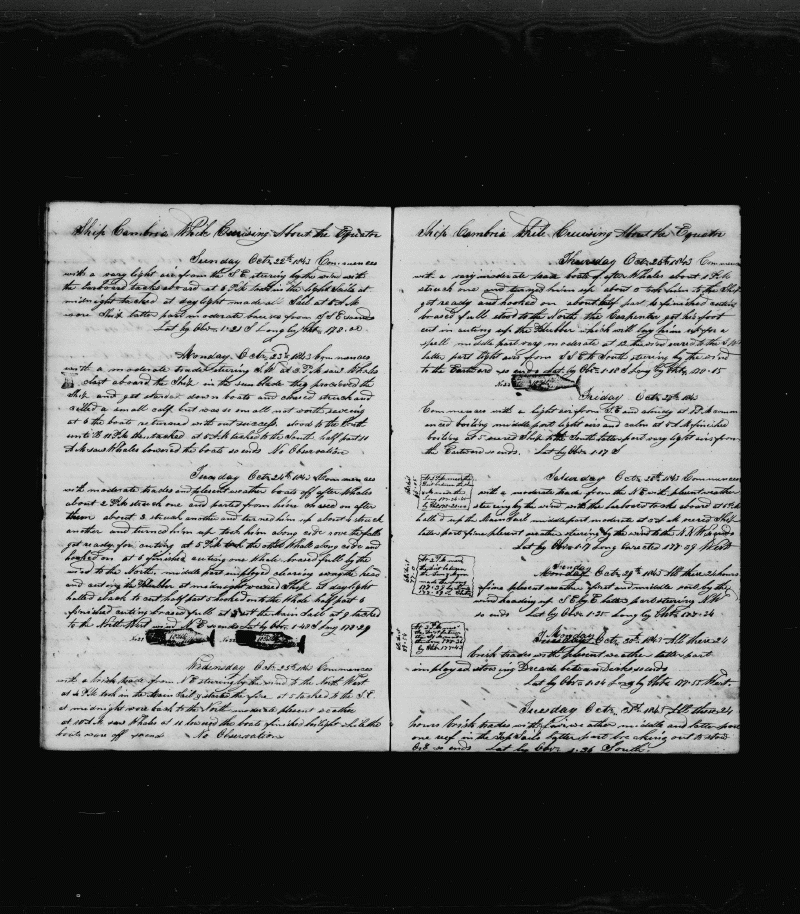 Ship Cambria While Cruising About the Equator
Sunday Octr 22th 1843 Commences
with a very light air from the S.E. steering by the wind with
the larboard tacks aboard at 6 P.M. took in the light Sails at
midnight tacked at daylight made all Sail at 8 A.M.
wore Ship latter part moderate breeze from S.E. so ends
Lat by Obv. 1-21 S Long by Cht. 178-20
Monday Octr 23th 1843 Commences
with a moderate trades steering S.W. at 3 P.M. saw Whales
close aboard the Ship in the sun blade they perceived the
Ship and got started down boats and chased struck and
killed a small calf but was so small not worth saving
at 6 the boats returned with out success stood to the North
until 11 P.M. then tacked at 5 A.M. tacked to the South half past 11
A.M. saw Whales lowered the boats so ends No Observation
Tuesday Octr 24th 1843 Commences
with moderate trades and plesent weather boats off after Whales
about 2 P.M. struck one and parted from him chased on after
them about 3 struck another and turned him up about 4 struck
another and turned him up took him along side rove the falls
got ready for cuting at 5 P.M. took the other Whale along side and
hooked on at 6 finished cuting one Whale braced full by the
wind to the North middle part imployed clearing away the head
and cuting the Blubber at midnight wered Ship at daylight
halled aback to cut half past 5 hooked onto the Whale half past 8
finished cuting braced full and set the main Sail at 9 tacked
to the North West wind N.E. so ends Lat by Obv. 1-40 S Long 178-29
Wednesday Octr 25th 1843 Commences
with a brisk trade from N.E. steering by the wind to the North West
at 4 P.M. took in the main Sail & started the fire at 5 tacked to the S.E.
at midnight wore back to the North moderate plesent weather
at 10 A.M. saw Whale at 11 lowered the boats finished boiling while the
boats were off so ends No Observation
Ship Cambria While Cruising About the Equator
Thursday Octr 26th 1843 Commences
with a very moderate trade boats off after Whales about 1 P.M.
struck one and turned him up about 3 took him to the Ship
got ready and hooked on about half past 4 finished cuting
braced full stood to the North the Carpenter got his foot
cut in cuting up the Blubber which will lay him up for a
spell middle part very moderate at 12 the wind wered to the S.W.
latter part light airs from S.E. & South steering by the wind
to the Eastward so ends Lat by Obv. 1-18 S Long by Cht. 178-15
Friday Octr 27th 1843
Commences with a light air from S.E. and cloudy at P.M. comm
enced boiling middle part light airs and calm at 5 A.M. finished
boiling at 5 wered Ship to the South latter part very light airs from
the Eastward so ends Lat by Obv. 1-17 S
Saturday Octr 28th 1843 Commences
with a moderate trade from the N.E. with plesent weather
steering by the wind with the larboard tacks aboard at 5 P.M.
halled up the Main Sail middle part moderate at 3 A.M. wered Ship
latter part fine plesent weather steering by the wind to the N.N.W. so ends
Lat by Obv. 1-7 Long Corrected 177-29 West
Sunday
Monday Octr 29th 1843 All these 24 hours
fine plesent weather first and middle part by the
wind heading up S.E. by E. latter part steering N.W.
so ends Lat by Obv. 1-25 Long by Cht. 177-24
Monday
Tuesday Octr 30th 1843 All these 24
brisk trades with plesent weather latter part
imployed stowing
Lat by Obv. 1-04 Long by Cht. 177-15 West
Tuesday Octr 31th 1843 All these 24
hours brisk trades with fair weather middle and latter part
one reef in the Top Sails latter part breaking out to stow
Oil so ends Lat by Obv. 1-36 South